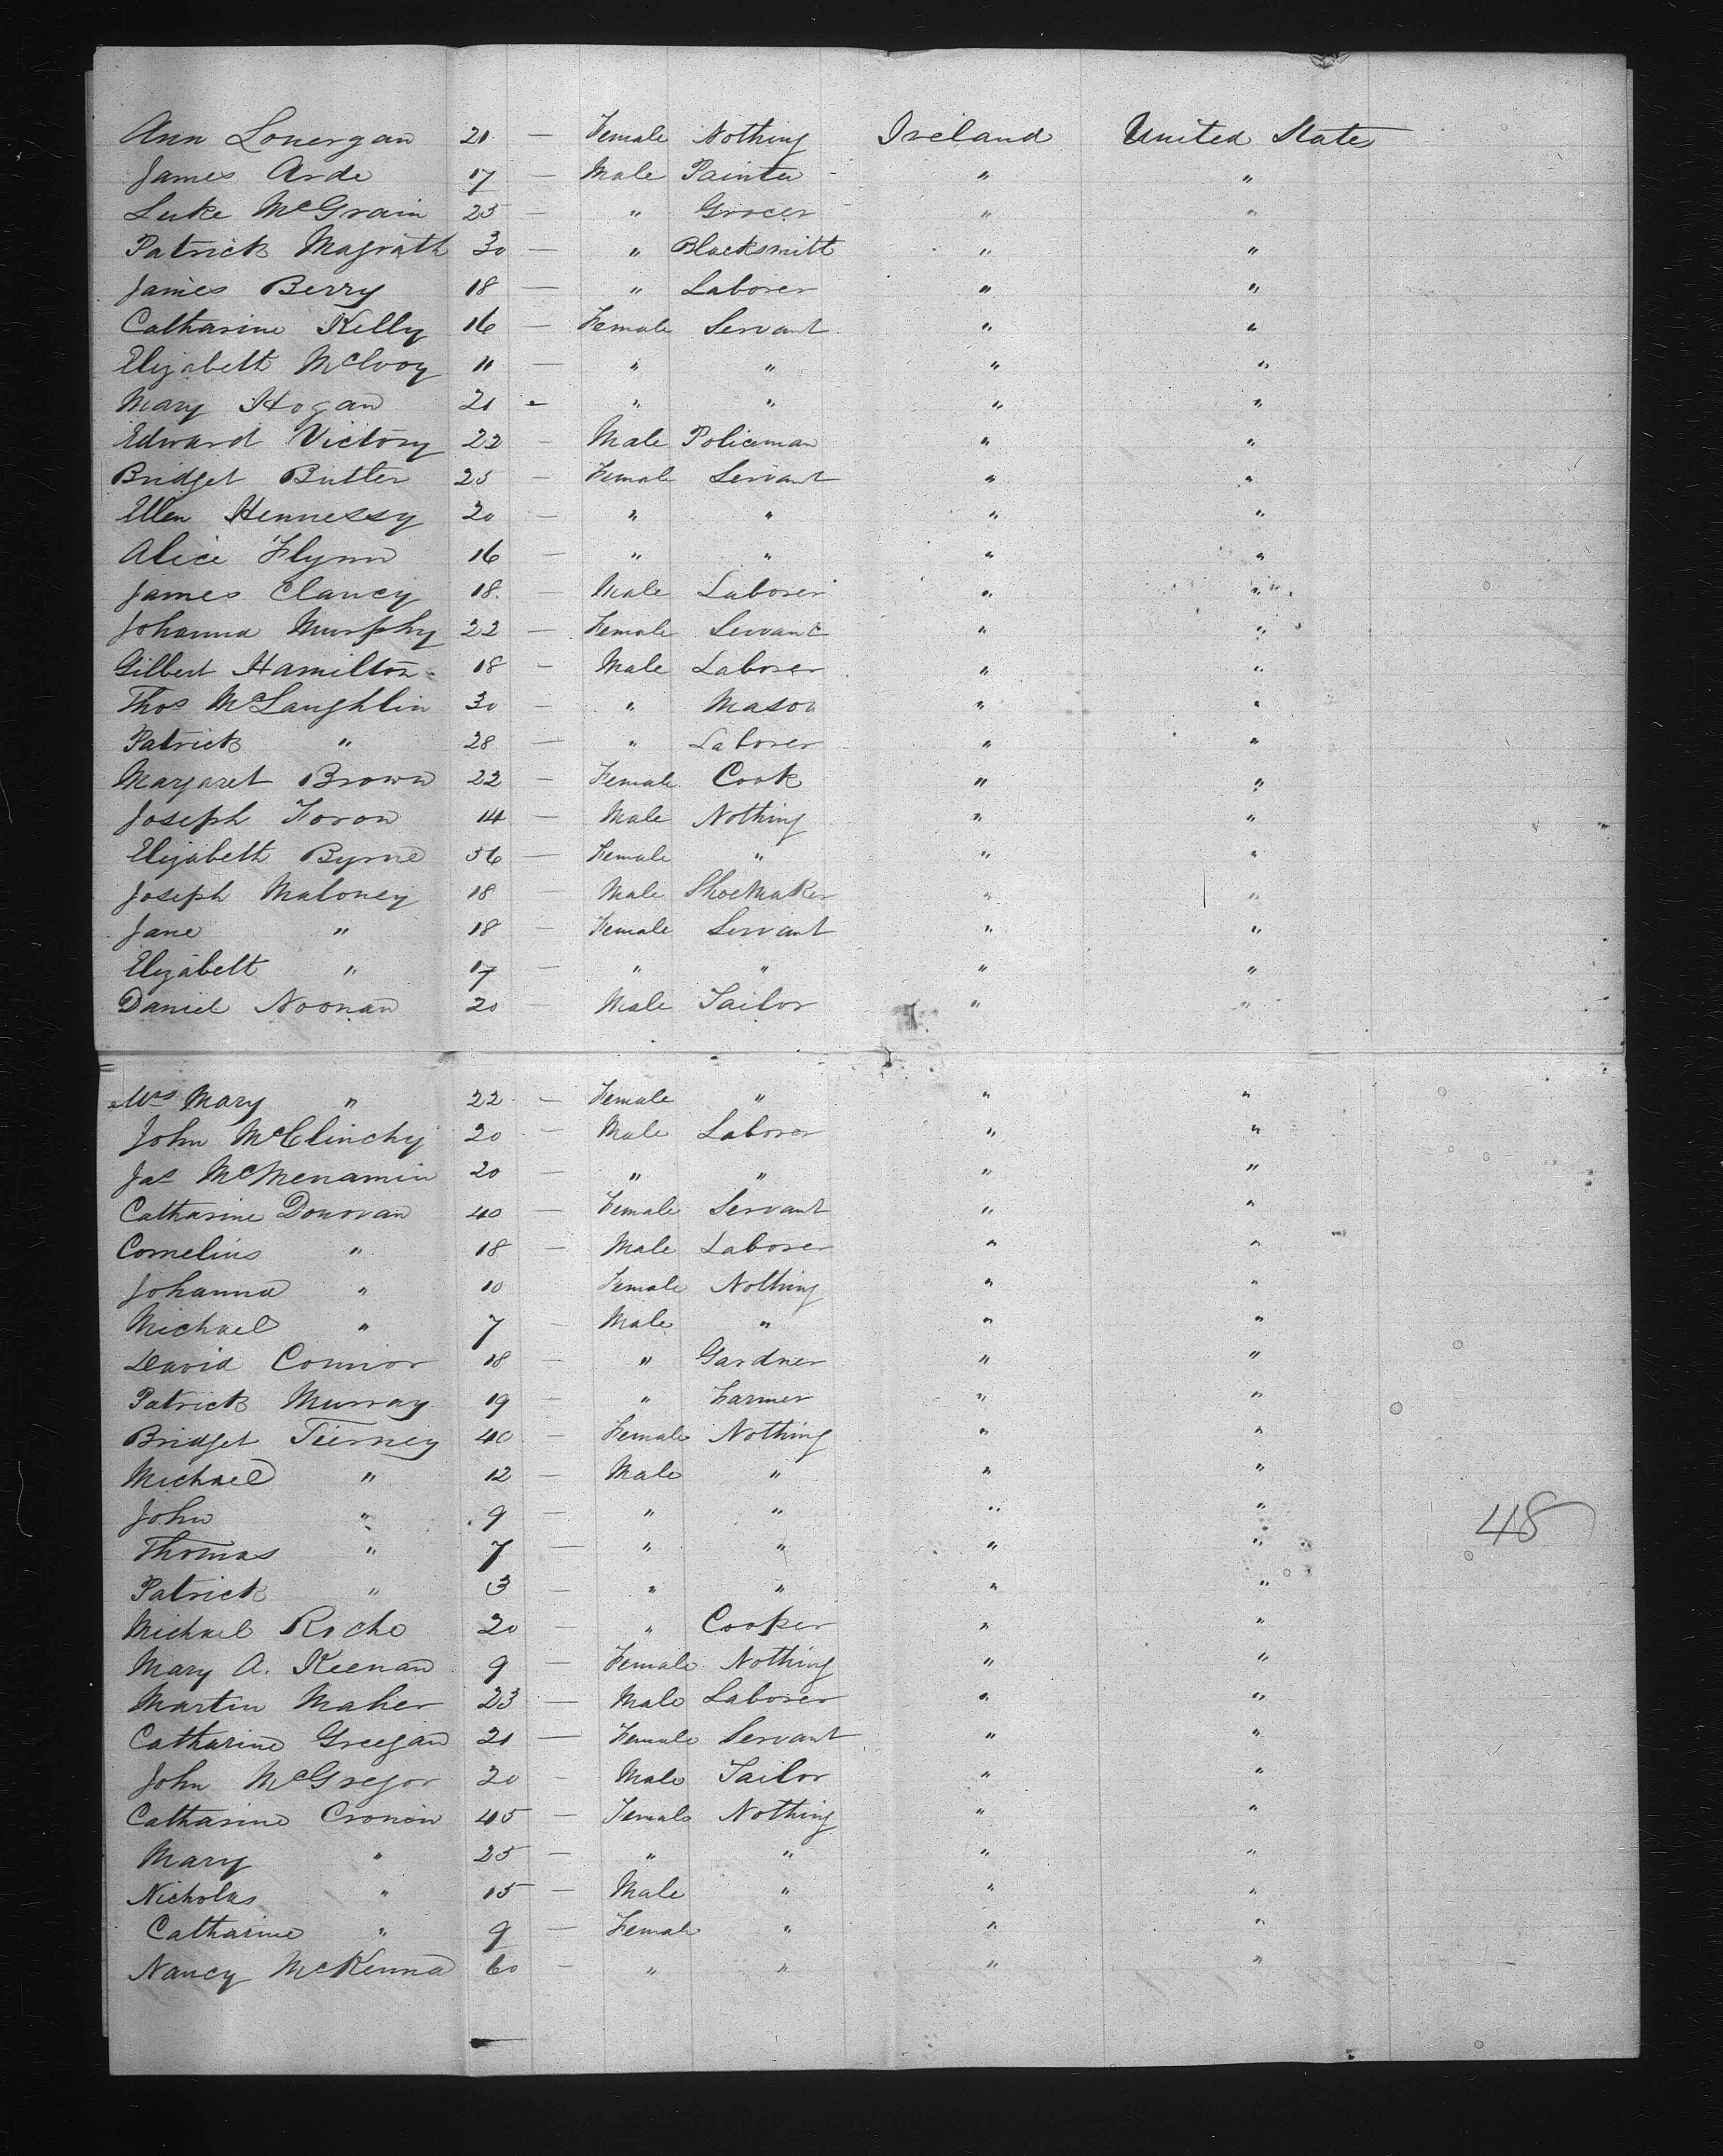 Ann Lonergan 21 — Female Nothing Ireland United States
James Arde 17 — Male Painter " "
Luke McGrain 25 — " Grocer " "
Patrick Magrath 30 — " Blacksmith " "
James Berry 18 — " Laborer " "
Catharine Kelly 16 — Female Servant " "
Elizabeth McEvoy 11 — " " " "
Mary Hogan 21 — " " " "
Edward Victory 22 — Male Policeman " "
Bridget Butler 25 — Female Servant " "
Ellen Hennessy 20 — " " " "
Alice Flynn 16 — " " " "
James Clancy 18 — Male Laborer " "
Johanna Murphy 22 — Female Servant " "
Gilbert Hamilton 18 — Male Laborer " "
Thos McLaughlin 30 — " Mason " "
Patrick " 28 — " Laborer " "
Margaret Brown 22 — Female Cook " "
Joseph Foron 14 — Male Nothing " "
Elizabeth Byrne 56 — Female " " "
Joseph Maloney 18 — Male ShoeMaker " "
Jane " 18 — Female Servant " "
Elizabeth " 17 — " " " "
Daniel Noonan 20 — Male Tailor " "
Mrs Mary " 22 — Female " " "
John McClinchy 20 — Male Laborer " "
Jas McMenamin 20 — " " " "
Catharine Donovan 40 — Female Servant " "
Cornelius " 18 — Male Laborer " "
Johanna " 10 Female Nothing " "
Michael " 7 — Male " " "
David Connor 18 — " Gardner " "
Patrick Murray 19 — " Farmer " "
Bridget Tierney 40 — Female Nothing " "
Michael " 12 — Male " " "
John " 9 — " " " "
Thomas " 7 — " " " "
Patrick " 3 — " " " "
Michael Roche 20 — " Cooper " "
Mary A. Keenan 9 — Female Nothing " "
Martin Maher 23 — Male Laborer " "
Catharine Greegan 21 — Female Servant " "
John McGregor 20 — Male Tailor " "
Catharine Cronin 45 — Female Nothing " "
Mary " 25 — " " " "
Nicholas " 15 — Male " " "
Catharine " 9 — Female " " "
Nancy McKenna 60 — " " " "
48